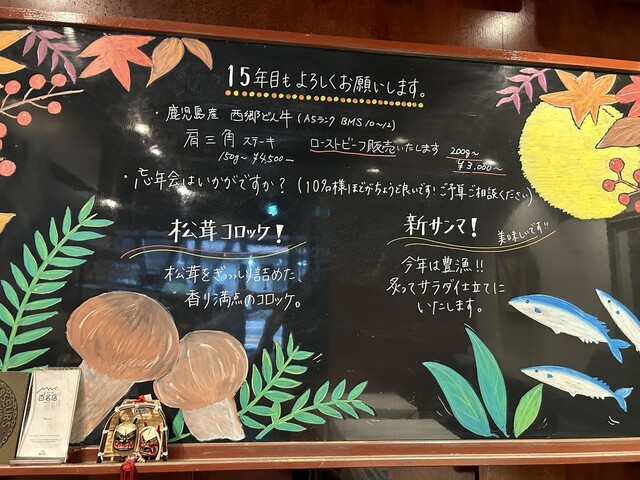 15年目もよろしくお願いします。
・鹿児島産 西郷どん牛 (A5ランク BMS10~12)
肩三角 ステーキ ローストビーフ販売いたします 200g~
150g~ ¥4,500- ¥3,000~
・忘年会はいかがですか?(10名様ほどがちょうど良いです!ご予算ご相談ください)
松茸コロッケ!
松茸をぎっっっしり詰めた
香り満点のコロッケ。
新サンマ! 美味しいです!!
今年は豊漁!!
炙ってサラダ仕立てに
いたします。
百名店